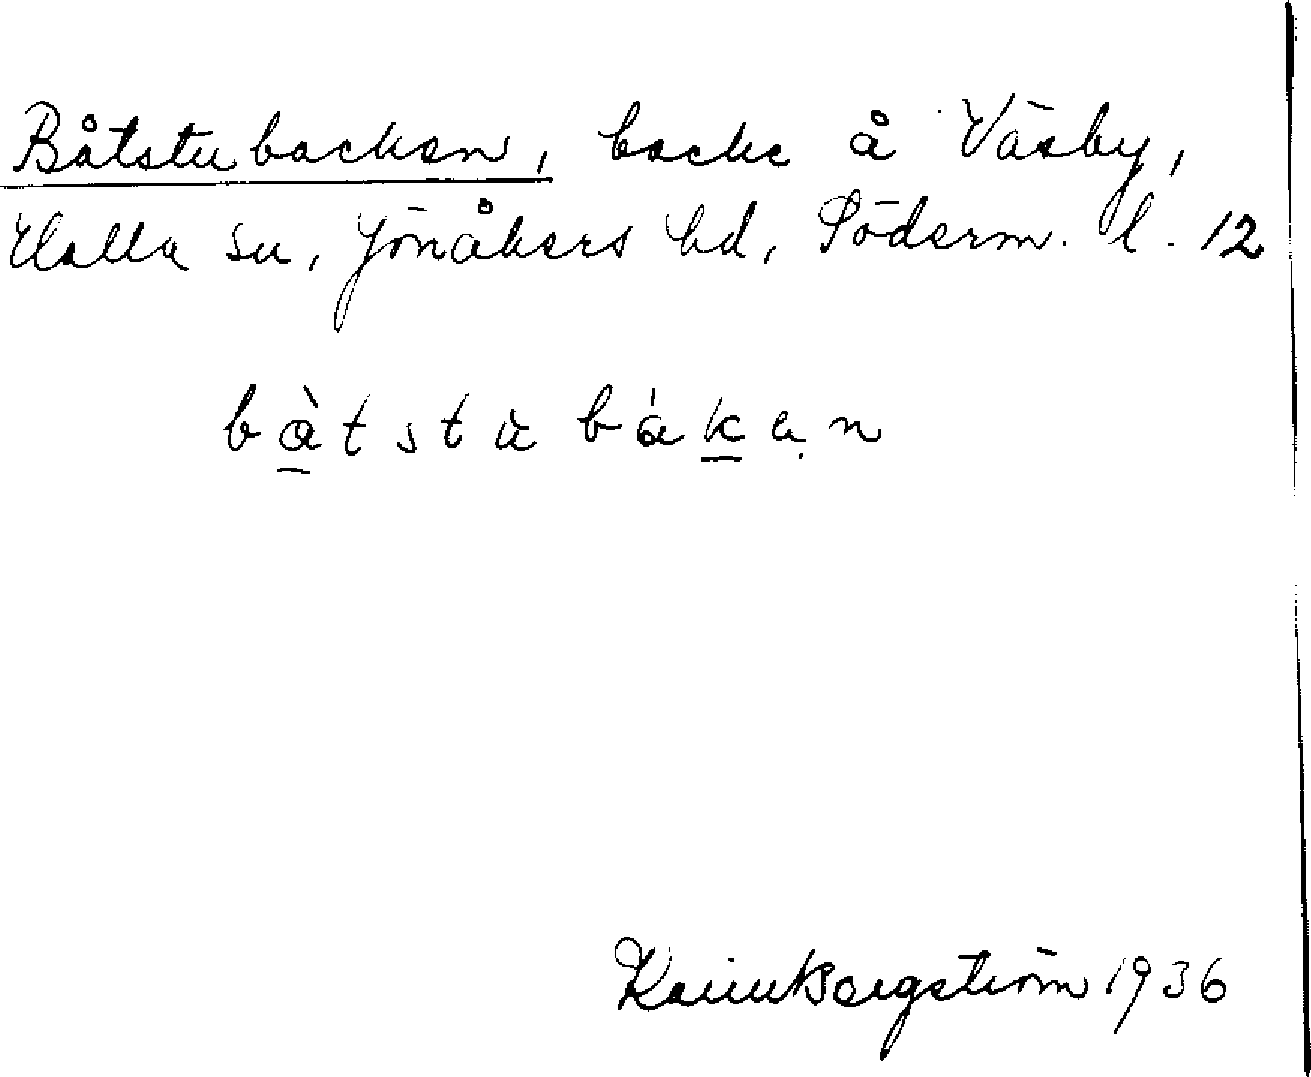 Båtstubacken, backe å Väsby,
Halla sn, Jönåkers hd, Söderm. l. 12
bàtstu̇bákạn
Karin Bergström 1936